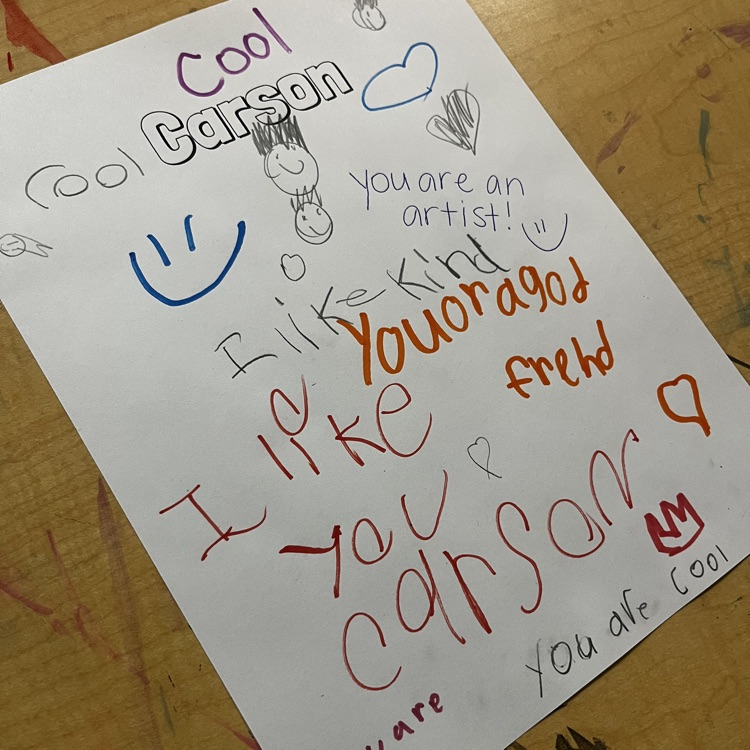 Cool
Carson
Cool
you are an
artist!
I like kind
Youoragod
frend
I like
you
carson
you are cool
are